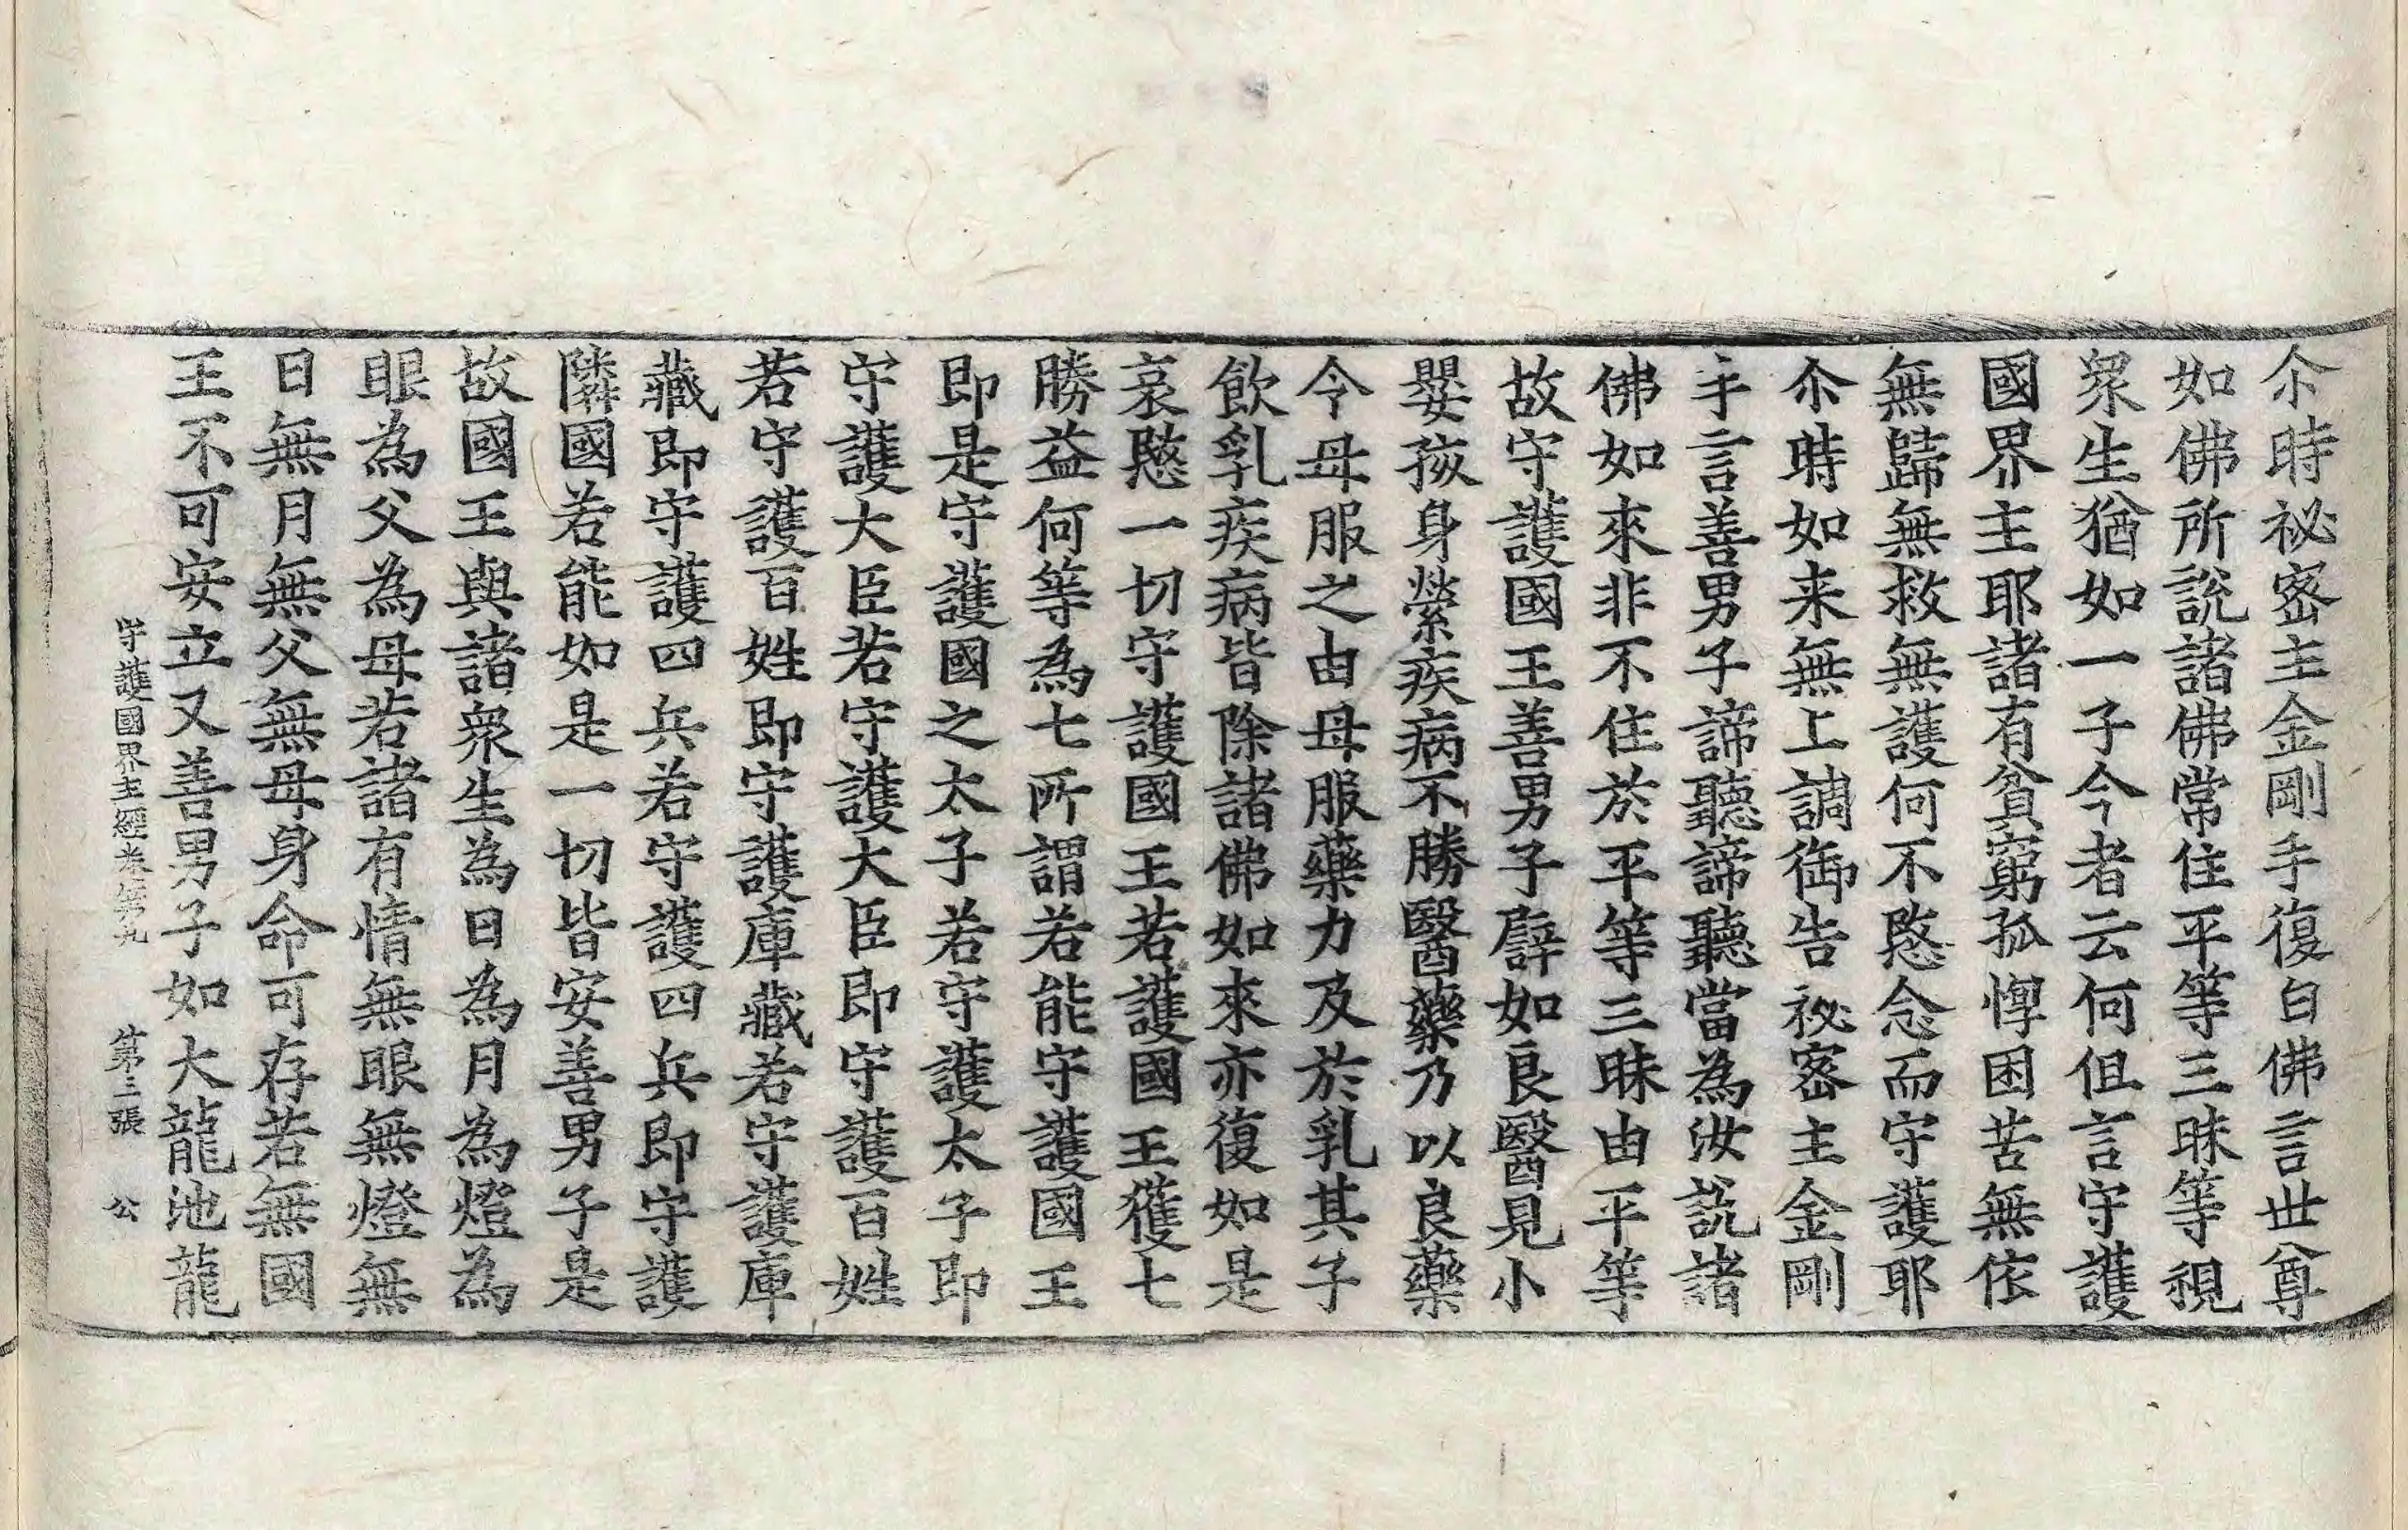 尒時祕密主金剛手復白佛言世尊
如佛所說諸佛常住平等三昧等視
衆生猶如一子今者云何但言守護
國界主耶諸有貧窮孤惸困苦無依
無歸無救無護何不愍念而守護耶
尒時如来無上調御告祕密主金剛
手言善男子諦聽諦聽當為汝説諸
佛如來非不住於平等三昧由平等
故守護國王善男子譬如良醫見小
嬰孩身縈疾病不勝醫藥乃以良藥
令母服之由母服藥力及於乳其子
飲乳疾病皆除諸佛如來亦復如是
哀愍一切守護國王若護國王獲七
勝益何等為七所謂若能守護國王
即是守護國之太子若守護太子即
守護大臣若守護大臣即守護百姓
若守護百姓即守護庫藏若守護庫
藏即守護四兵若守護四兵即守護
隣國若能如是一切皆安善男子是
故國王與諸衆生為日為月為燈為
眼為父為母若諸有情無眼無燈無
日無月無父無母身命可存若無國
王不可安立又善男子如大龍池龍
守護國界主經卷第九 第三張 公